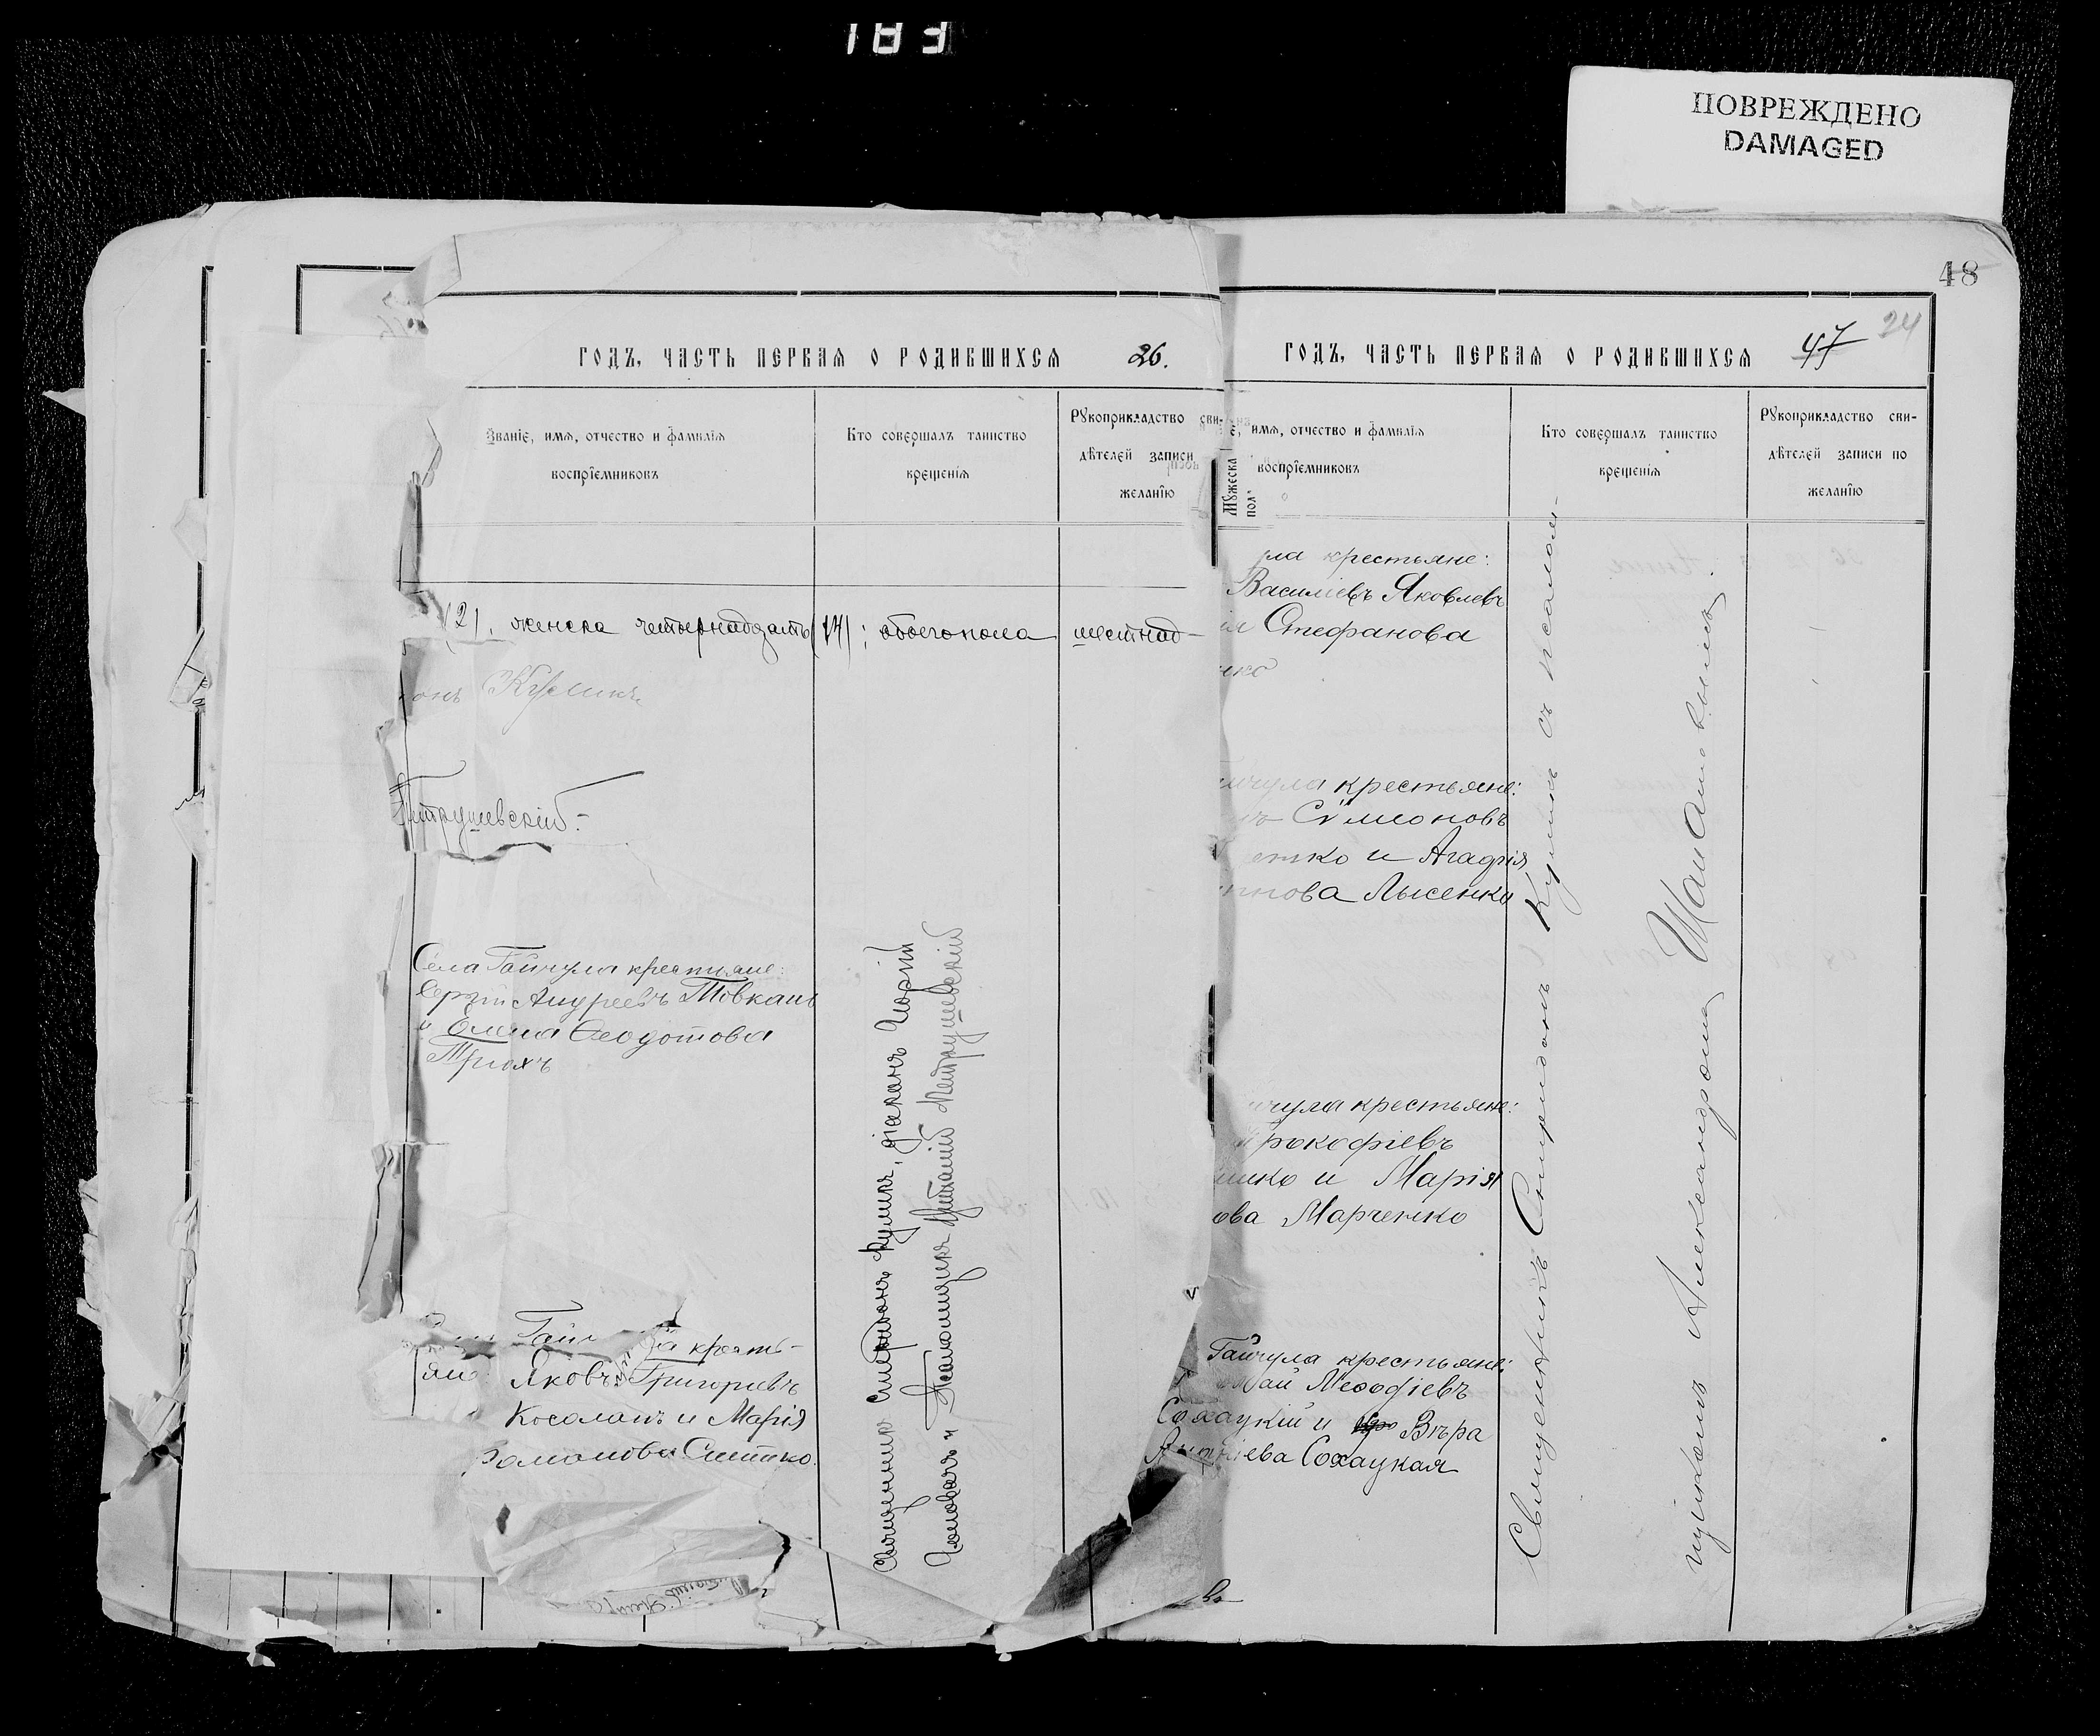 183
ПОВРЕЖДЕНО
DAMAGED
ГОДЪ, ЧАСТЬ ПЕРВАЯ О РОДИВШИХСЯ 26.
Званіе, имя, отчество и фамилія
воспріемниковъ
Кто совершалъ таинство
крещенія
Рукоприкладство сви-
дѣтелей записи
желанію
(2), женска четырнадцать (14); обоего пола шестнад-
онъ Куликъ
Петрушевскій.
Села Гайчула крестьяне:
Сергій Андреевъ Товкань
и Елена Ѳеодотова
Трюхъ
Гай ла кресть-
яне Яковъ Григорьевъ
Косолапъ и Марія
Романова Ситько.
Священникъ Спиридонъ Куликъ, діаконъ Георгій
Поповъ и Псаломщикъ Виталій Петрушевскій
48
24
ГОДЪ, ЧАСТЬ ПЕРВАЯ О РОДИВШИХСЯ 47
имя, отчество и фамилія
воспріемниковъ
Мужеска
пол
Кто совершалъ таинство
крещенія
Рукоприкладство сви-
дѣтелей записи по
желанію
ла крестьяне:
Василіевъ Яковлевъ
ія Стефанова
нко
йчула крестьяне:
ъ Сѵмеоновъ
енко и Агафія
нова Лысенко
чула крестьяне:
Прокофіевъ
енко и Марія
ова Марченко
Гайчула крестьяне:
олай Меѳодіевъ
Сохацкій и Вѣра
ева Сохацкая
Священникъ Спиридонъ Куликъ съ псалом-
щикомъ Александромъ Шаповаловымъ.